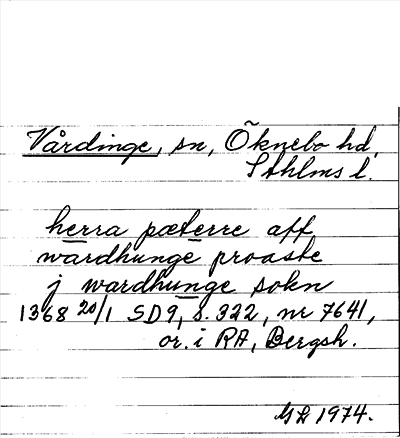 Vårdinge, sn, Öknebo hd,
Sthlms l.
herra pæterre aff
wardhunge proaste
j wardhunge sokn
1368 20/1 SD9, s. 322, nr 7641,
or. i RA, Bergsh.
1974.